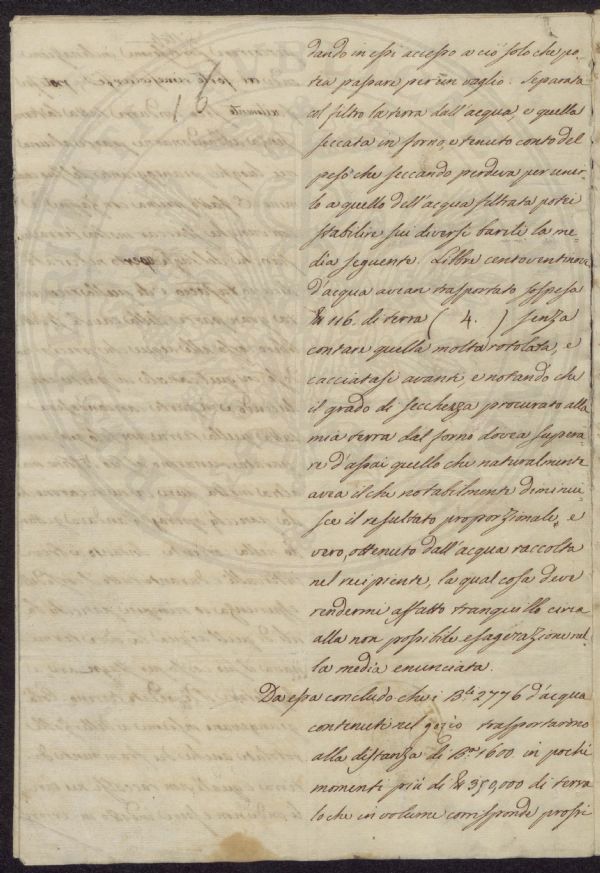 16
dando in essi accesso a ciò solo che po-
tea passare per un vaglio. Separata
col filtro la terra dall'acqua, e quella
seccata in forno, e tenuto conto del
peso che seccando perdeva per unir-
lo a quello dell'acqua filtrata potei
stabilire sui diversi barili la me-
dia seguente. Libbre centoventinove
d'acqua avean trasportato sospesa
116. di terra ( 4. ) senza
contare quella molta rotolata, e
cacciatasi avanti, e notando che
il grado di secchezza procurato alla
mia terra dal forno dovea supera-
re d'assai quello che naturalmente
avea il che notabilmente diminui-
sce il resultato proporzionale, e
vero, ottenuto dall'acqua raccolta
nel recipiente, la qual cosa deve
rendermi affatto tranquillo circa
alla non possibile esagerazione sul-
la media enunciata.
Da essa concludo che i B.li 2776 d'acqua
contenuti nel gozio trasportarono
alla distanza di B.a 1600 in pochi
momenti più di 350,000 di terra
lo che in volume corrisponde prossi